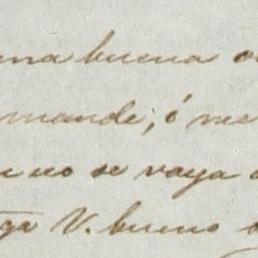 una buena
mande, ó me
no se vaya
V. bueno